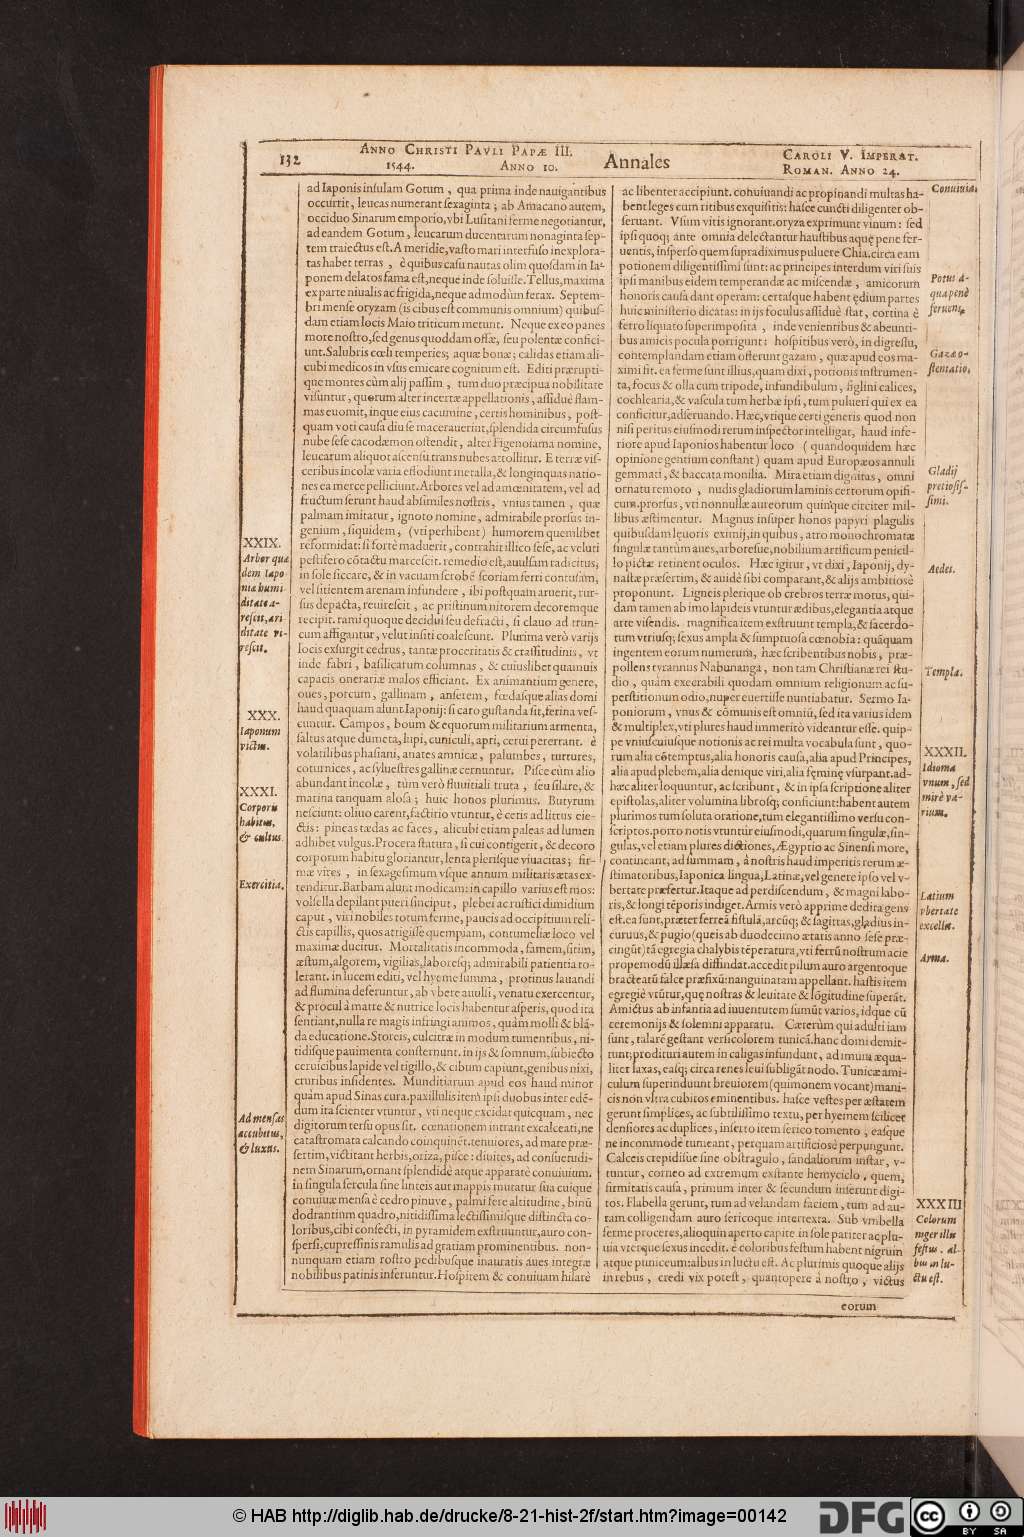 132
ANNO CHRISTI PAVLI PAPÆ III.
1544. ANNO 10.
Annales
CAROLI V. IMPERAT.
ROMAN. ANNO 24.
ad Iaponis insulam Gotum, qua prima inde nauigantibus
occurrit, leucas numerant sexaginta; ab Amacano autem,
occiduo Sinarum emporio, vbi Lusitani ferme negotiantur,
ad eandem Gotum, leucarum ducentarum nonaginta sep-
tem traiectus est. A meridie, vasto mari interfuso inexplora-
tas habet terras, è quibus casu nautas olim quosdam in Ia-
ponem delatos fama est, neque inde soluisse. Tellus, maxima
ex parte niualis ac frigida, neque admodùm ferax. Septem-
bri mense oryzam (is cibus est communis omnium) quibus-
dam etiam locis Maio triticum metunt. Neque ex eo panes
more nostro, sed genus quoddam offæ, seu polentæ confici-
unt. Salubris cœli temperies; aquæ bonæ; calidas etiam ali-
cubi medicos in vsus emicare cognitum est. Editi prærupti-
que montes cùm alij passim, tum duo præcipua nobilitate
visuntur, quorum alter incertæ appellationis, assiduè flam-
mas euomit, inque eius cacumine, certis hominibus, post-
quam voti causa diu se macerauerint, splendida circumfusus
nube sese cacodæmon ostendit, alter Figenoiama nomine,
leucarum aliquot ascensu trans nubes attollitur. E terræ vis-
ceribus incolæ varia effodiunt metalla, & longinquas natio-
nes ea merce pelliciunt. Arbores vel ad amœnitatem, vel ad
fructum ferunt haud absimiles nostris, vnius tamen, quæ
palmam imitatur, ignoto nomine, admirabile prorsus in-
genium, siquidem, (vti perhibent) humorem quemlibet
reformidat: si fortè maduerit, contrahit illico sese, ac veluti
pestifero cōtactu marcescit. remedio est, auulsam radicitus,
in sole siccare, & in vacuam scrobē scoriam ferri contusam,
vel sitientem arenam infundere, ibi postquàm aruerit, rur-
sus depacta, reuirescit, ac pristinum nitorem decoremque
recipit. rami quoque decidui seu defracti, si clauo ad trun-
cum affigantur, velut insiti coalescunt. Plurima verò varijs
locis exsurgit cedrus, tantæ proceritatis & crassitudinis, vt
inde fabri, basilicarum columnas, & cuiuslibet quamuis
capacis onerariæ malos efficiant. Ex animantium genere,
oues, porcum, gallinam, anserem, fœdasque alias domi
haud quaquam alunt Iaponij: si caro gustanda sit, ferina ves-
cuntur. Campos, boum & equorum militarium armenta,
saltus atque dumeta, lupi, cuniculi, apri, cerui pererrant. è
volatilibus phasiani, anates amnicæ, palumbes, turtures,
coturnices, ac syluestres gallinæ cernuntur. Pisce cùm alio
abundant incolæ, tùm verò fluuitiali truta, seu silare, &
marina tanquam alosa; huic honos plurimus. Butyrum
nesciunt: oliuo carent, factitio vtuntur, è cetis ad littus eie-
ctis: pineas tædas ac faces, alicubi etiam paleas ad lumen
adhibet vulgus. Procera statura, si cui contigerit, & decoro
corporum habitu gloriantur, lenta plerisque viuacitas; fir-
mæ vires, in sexagesimum vsque annum militaris ætas ex-
tenditur. Barbam alunt modicam: in capillo varius est mos:
volsella depilant pueri sinciput, plebei ac rustici dimidium
caput, viri nobiles totum ferme, paucis ad occipitium reli-
ctis capillis, quos attigisse quempiam, contumeliæ loco vel
maximæ ducitur. Mortalitatis incommoda, famem, sitim,
æstum, algorem, vigilias, laboresq; admirabili patientia to-
lerant. in lucem editi, vel hyeme summa, protinus lauandi
ad flumina deferuntur, ab vbere auulsi, venatu exercentur,
& procul à matre & nutrice locis habentur asperis, quod ita
sentiant, nulla re magis infringi animos, quàm molli & blā-
da educatione. Storeis, culcitræ in modum tumentibus, ni-
tidisque pauimenta consternunt. in ijs & somnum, subiecto
ceruicibus lapide vel tigillo, & cibum capiunt, genibus nixi,
cruribus insidentes. Munditiarum apud eos haud minor
quàm apud Sinas cura. paxillulis itenì ipsi duobus inter edē-
dum ita scienter vtuntur, vti neque excidat quicquam, nec
digitorum tersu opus sit. cœnationem intrant excalceati, ne
catastromata calcando coinquinēt. tenuiores, ad mare præ-
sertim, victitant herbis, oriza, pisce: diuites, ad consuetudi-
nem Sinarum, ornant splendidè atque apparatè conuiuium.
in singula fercula sine linteis aut mappis mutatur sua cuique
conuiuæ mensa è cedro pinuve, palmi fere altitudine, binū
dodrantium quadro, nitidissima lectissimisque distincta co-
loribus, cibi consecti, in pyramidem exstruuntur, auro con-
spersi, cupressinis ramulis ad gratiam prominentibus. non-
nunquam etiam rostro pedibusque inauratis aues integræ
nobilibus patinis inferuntur. Hospitem & conuiuam hilarè
XXIX.
Arbor quæ
dam Iapo
nia humi-
ditate a-
rescit, ari
ditate vi-
rescit.
XXX.
Iaponum
victus.
XXXI.
Corporis
habitus,
& cultus.
Exercitia.
Ad mensas
accubitus,
& luxus.
ac libenter accipiunt. conuiuandi ac propinandi multas ha-
bent leges cum ritibus exquisitis: hasce cuncti diligenter ob-
seruant. Vsum vitis ignorant. oryza exprimunt vinum: sed
ipsi quoq; ante omnia delectantur haustibus aquę pene fer-
uentis, insperso quem supra diximus puluere Chia. circa eam
potionem diligentissimi sunt: ac principes interdum viri suis
ipsi manibus eidem temperandæ ac miscendæ, amicorum
honoris causa dant operam: certasque habent ędium partes
huic ministerio dicatas: in ijs foculus assiduè stat, cortina è
ferro liquato superimposita, inde venientibus & abeunti-
bus amicis pocula porrigunt: hospitibus verò, in digressu,
contemplandam etiam offerunt gazam, quæ apud eos ma-
ximi fit. ea ferme sunt illius, quam dixi, potionis instrumen-
ta, focus & olla cum tripode, infundibulum, figlini calices,
cochlearia, & vascula tum herbæ ipsi, tum pulueri qui ex ea
conficitur, adseruando. Hæc, vtique certi generis quod non
nisi peritus eiusmodi rerum inspector intelligat, haud infe-
riore apud Iaponios habentur loco (quandoquidem hæc
opinione gentium constant) quam apud Europæos annuli
gemmati, & baccata monilia. Mira etiam dignitas, omni
ornatu remoto, nudis gladiorum laminis certorum opifi-
cum. prorsus, vti nonnullæ aureorum quinque circiter mil-
libus æstimentur. Magnus insuper honos papyri plagulis
quibusdam lęuoris eximij, in quibus, atro monochromatæ
singulæ tantùm aues, arboresue, nobilium artificum penicil-
lo pictæ retinent oculos. Hæc igitur, vt dixi, Iaponij, dy-
nastæ præsertim, & auidè sibi comparant, & alijs ambitiosè
proponunt. Ligneis plerique ob crebros terræ motus, qui-
dam tamen ab imo lapideis vtuntur ædibus, elegantia atque
arte visendis. magnifica item exstruunt templa, & sacerdo-
tum vtriusq; sexus ampla & sumptuosa cœnobia: quāquam
ingentem eorum numerum, hæc scribentibus nobis, præ-
pollens tyrannus Nabunanga, non tam Christianæ rei stu-
dio, quàm execrabili quodam omnium religionum ac su-
perstitionum odio, nuper euertisse nuntiabatur. Sermo Ia-
poniorum, vnus & cōmunis est omniū, sed ita varius idem
& multiplex, vti plures haud immeritò videantur esse. quip-
pe vniuscuiusque notionis ac rei multa vocabula sunt, quo-
rum alia cōtemptus, alia honoris causa, alia apud Principes,
alia apud plebem, alia denique viri, alia fęminę vsurpant. ad-
hæc aliter loquuntur, ac scribunt, & in ipsa scriptione aliter
epistolas, aliter volumina librosq; conficiunt: habent autem
plurimos tum soluta oratione, tum elegantissimo versu con-
scriptos. porro notis vtuntur eiusmodi, quarum singulæ, sin-
gulas, vel etiam plures dictiones, Ægyptio ac Sinensi more,
contineant, ad summam, à nostris haud imperitis rerum æ-
stimatoribus, Iaponica lingua, Latinæ, vel genere ipso vel v-
bertate præfertur. Itaque ad perdiscendum, & magni labo-
ris, & longi tēporis indiget. Armis verò apprime dedita gens
est. ea sunt, præter ferreā fistulā, arcūq; & sagittas, gladius in-
curuus, & pugio (queis ab duodecimo ætatis anno sese præ-
cingūt) tā egregia chalybis tēperatura, vti ferrū nostrum acie
propemodū illæsa diffindat. accedit pilum auro argentoque
bracteatū falce præfixū: nanguinatam appellant. hastis item
egregiè vtūtur, quę nostras & leuitate & lōgitudine superāt.
Amictus ab infantia ad iuuentutem sumūt varios, idque cū
ceremonijs & solemni apparatu. Cæterùm qui adulti iam
sunt, talarē gestant versicolorem tunicā. hanc domi demit-
tunt; prodituri autem in caligas infundunt, ad imum æqua-
liter laxas, easq; circa renes leui subligāt nodo. Tunicæ ami-
culum superinduunt breuiorem (quimonem vocant) mani-
cis non vltra cubitos eminentibus. hasce vestes per æstatem
gerunt simplices, ac subtilissimo textu, per hyemem scilicet
densiores ac duplices, inserto item serico tomento, easque
ne incommodè tumeant, perquam artificiosè perpungunt.
Calceis crepidisue sine obstragulo, sandaliorum instar, v-
tuntur, corneo ad extremum exstante hemyciclo, quem,
firmitatis causa, primum inter & secundum inserunt digi-
tos. Flabella gerunt, tum ad velandam faciem, tum ad au-
ram colligendam auro sericoque intertexta. Sub vmbella
ferme proceres, alioquin aperto capite in sole pariter ac plu-
uia vterque sexus incedit. è coloribus festum habent nigrum
atque puniceum: albus in luctu est. Ac plurimis quoque alijs
in rebus, credi vix potest, quantopere à nostro, victus
eorum
Conuiuia.
Potus a-
qua penè
feruens.
Gazæ o-
stentatio.
Gladij
pretiosis-
simi.
Aedes.
Templa.
XXXII.
Idioma
vnum, sed
mirè va-
rium.
Latium
vbertate
excellit.
Arma.
XXXIII
Colorum
niger illis
festus. al-
bus in lu-
ctu est.
© HAB http://diglib.hab.de/drucke/8-21-hist-2f/start.htm?image=00142
DFG
cc
BY SA